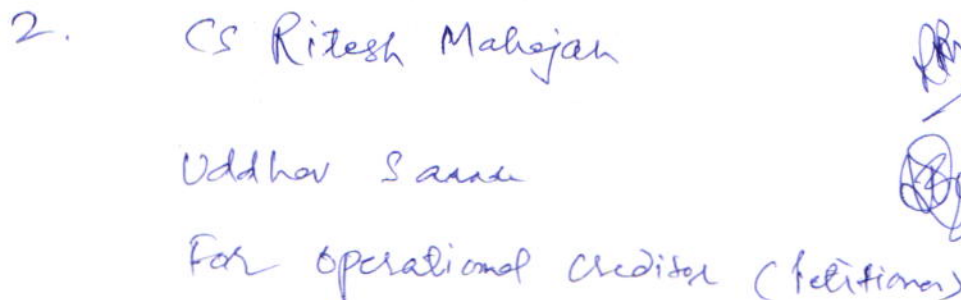 2. CS Ritesh Mahajan
Uddhav
For operational creditor (Petitioner)